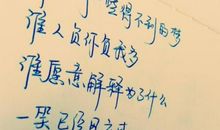 得不到的梦
谁人负你负我多
谁愿意解释为了什么
一笑已经风云过